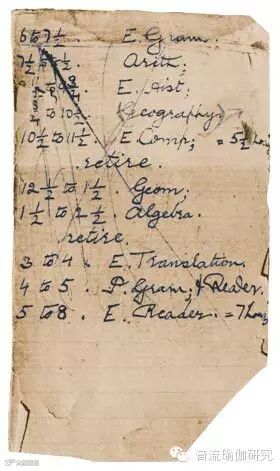 6 to 7½. E. Gram.
7½ to 8½. Arith;
E. Hist;
to 10½. Geography;
10½ to 11½. E. Comp; = 5½ hours
retire.
12½ to 1½. Geom;
1½ to 2½. Algebra.
retire.
3 to 4. E. Translation.
4 to 5. P. Gram; & Reader.
5 to 8. E. Reader. = 7 hours
音流瑜伽研究